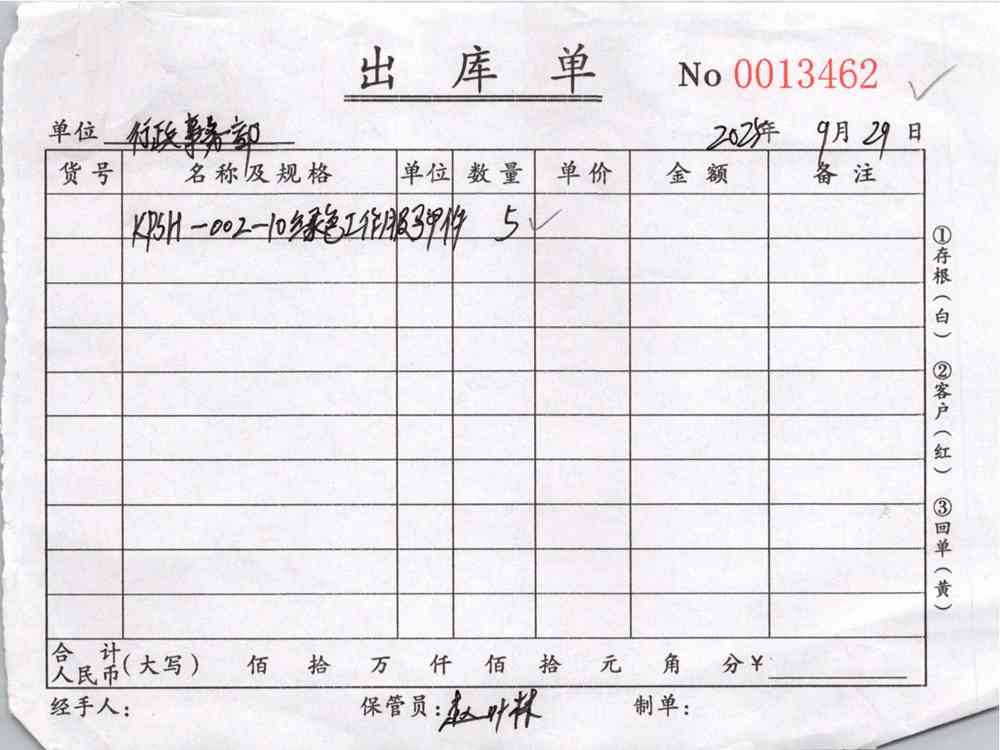 出库单 No 0013462
单位 行政事务部 2025年 9月 29日
货号 名称及规格 单位 数量 单价 金额 备注
KPSH-002-10绿色工作服 甲 件 5
合计人民币(大写) 佰 拾 万 仟 佰 拾 元 角 分 ¥
经手人: 保管员:赵叶林 制单:
①存根(白) ②客户(红) ③回单(黄)